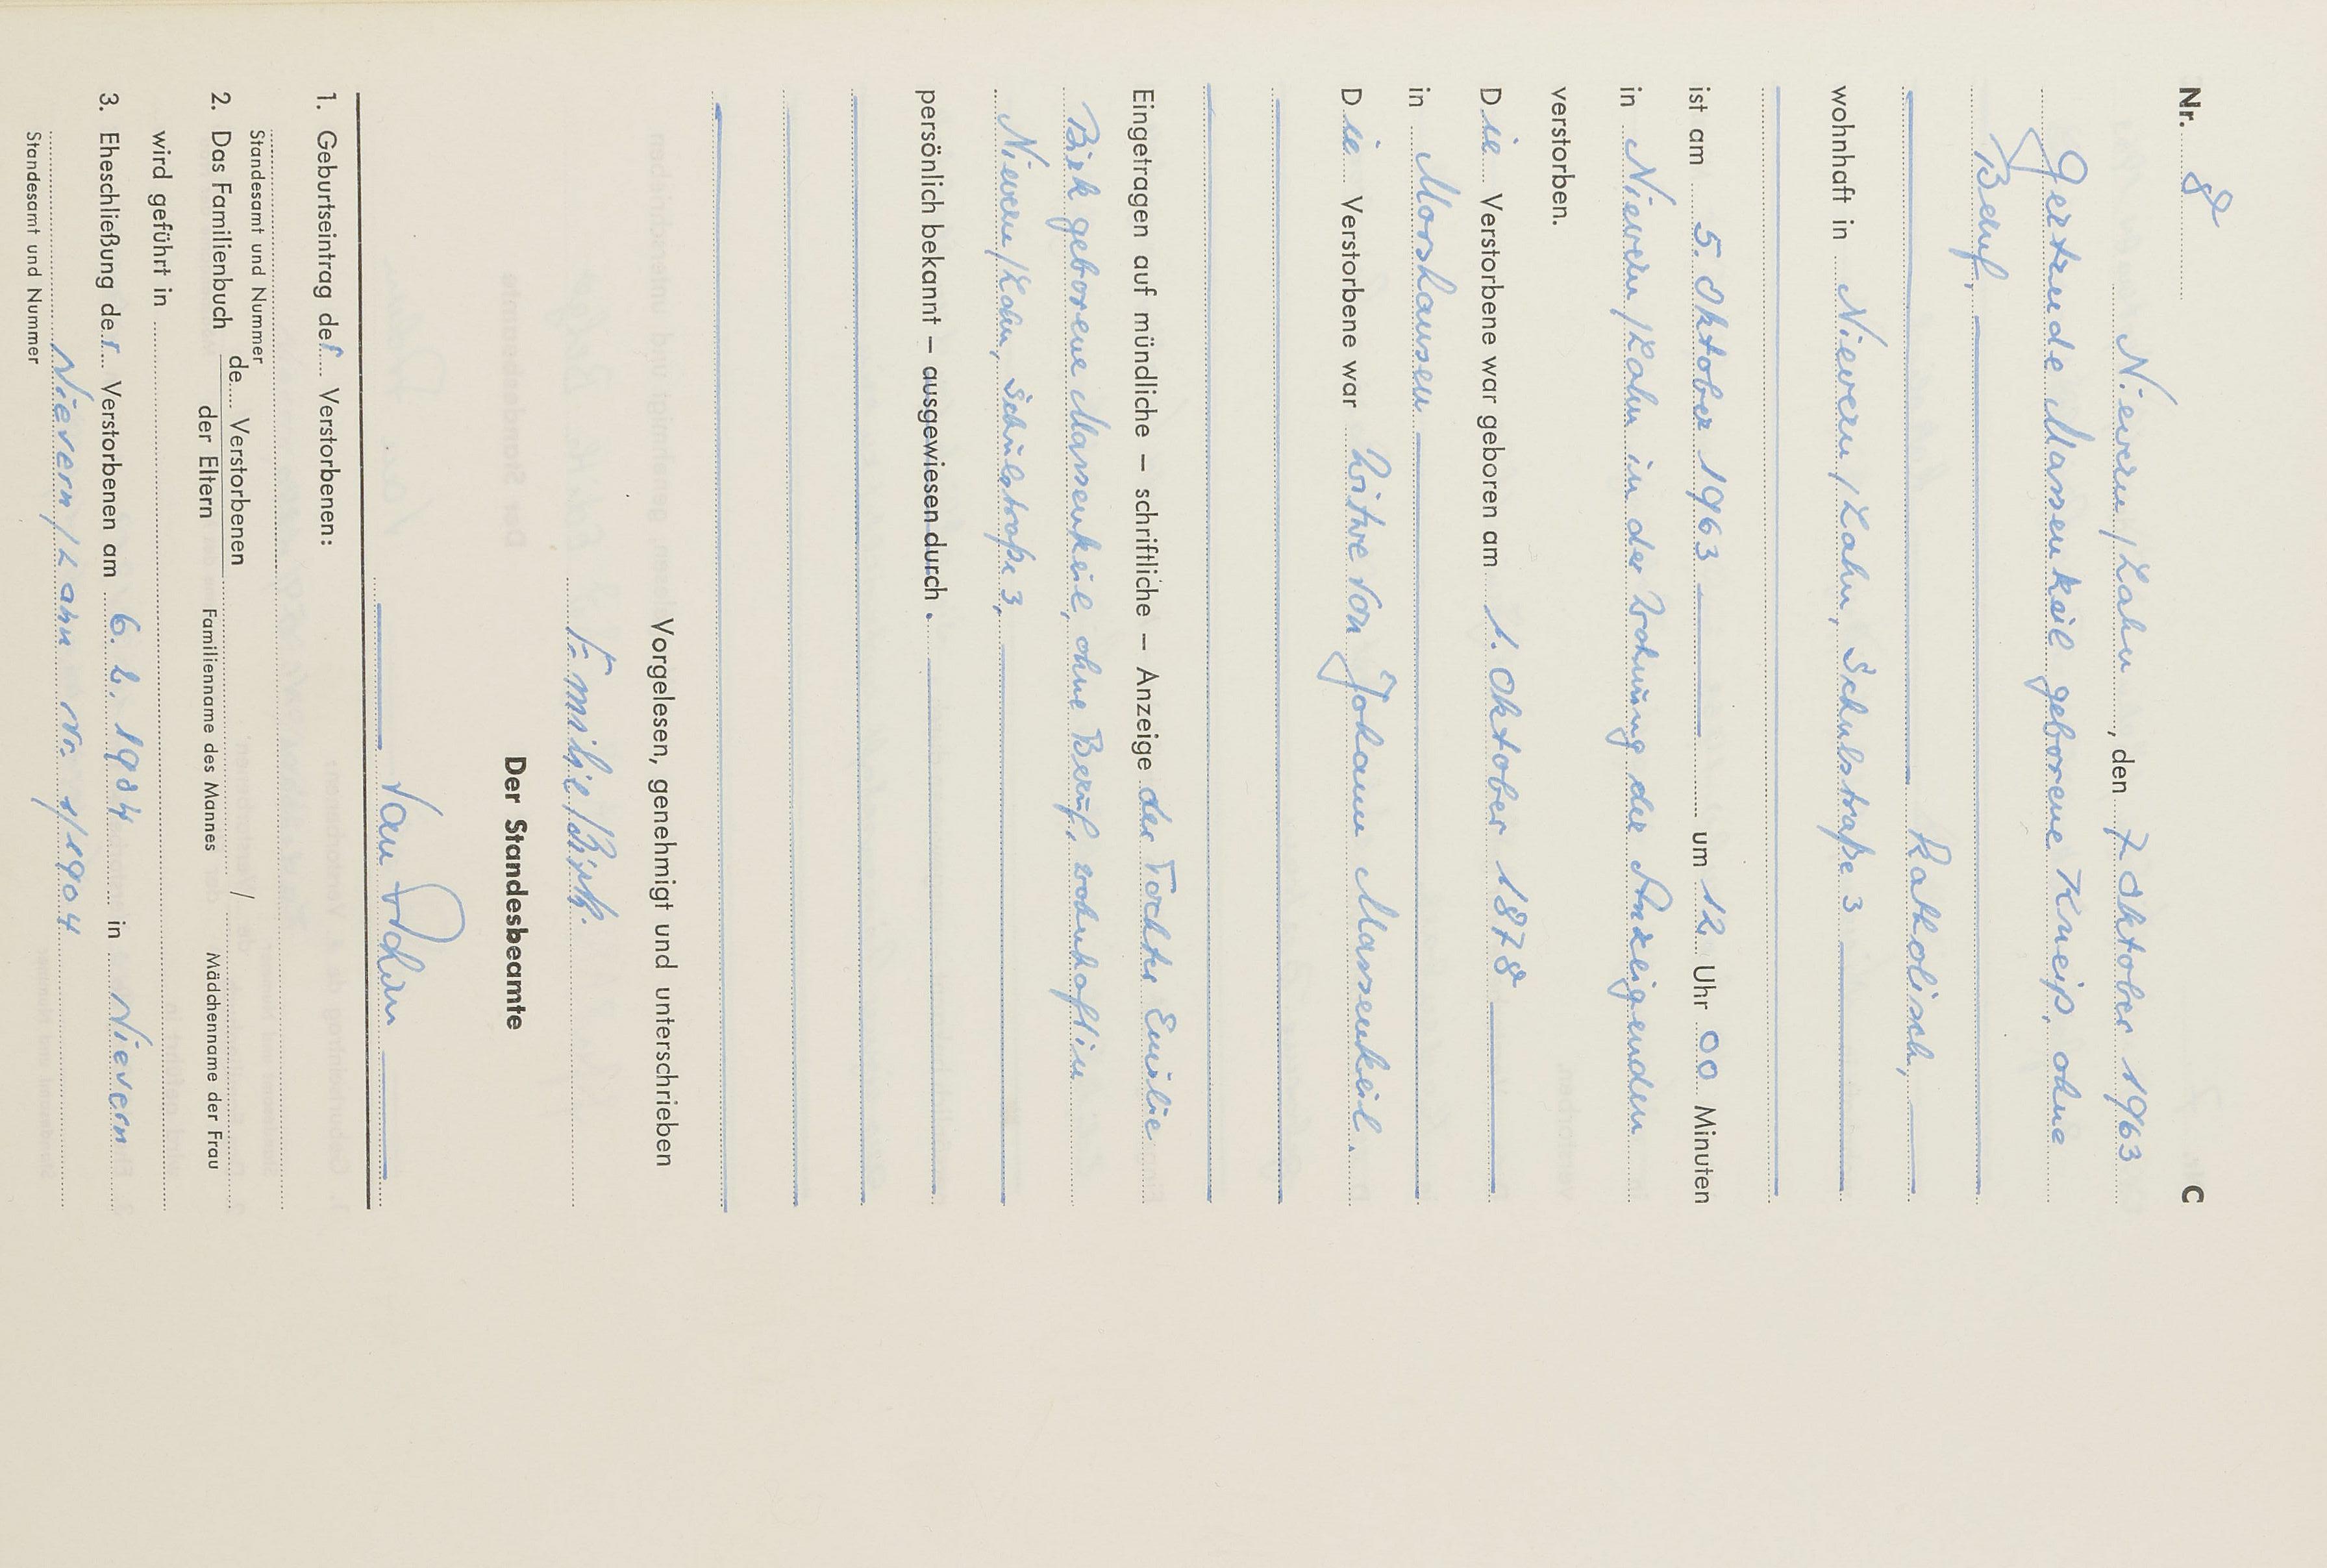 Nr. 8 C
Nievern/Lahn, den 7. Oktober 1963
Gertrude Massenkeil geborene Kneip, ohne
Beruf,
katholisch,
wohnhaft in Nievern/Lahn, Schulstraße 3
ist am 5. Oktober 1963 um 12 Uhr 00 Minuten
in Nievern/Lahn in der Wohnung der Anzeigenden
verstorben.
Die Verstorbene war geboren am 1. Oktober 1878
in Morshausen
Die Verstorbene war Witwe von Johann Massenkeil.
Eingetragen auf mündliche – schriftliche – Anzeige der Tochter Emilie
Birk geborene Massenkeil, ohne Beruf, wohnhaft in
Nievern/Lahn, Schulstraße 3,
persönlich bekannt – ausgewiesen durch.
Vorgelesen, genehmigt und unterschrieben
Emilie Birk.
Der Standesbeamte
1. Geburtseintrag der Verstorbenen:
Standesamt und Nummer
2. Das Familienbuch de Verstorbenen / der Eltern /
Familienname des Mannes Mädchenname der Frau
wird geführt in
3. Eheschließung der Verstorbenen am 6. 2. 1904 in Nievern
Nievern/Lahn Nr. 1/1904
Standesamt und Nummer